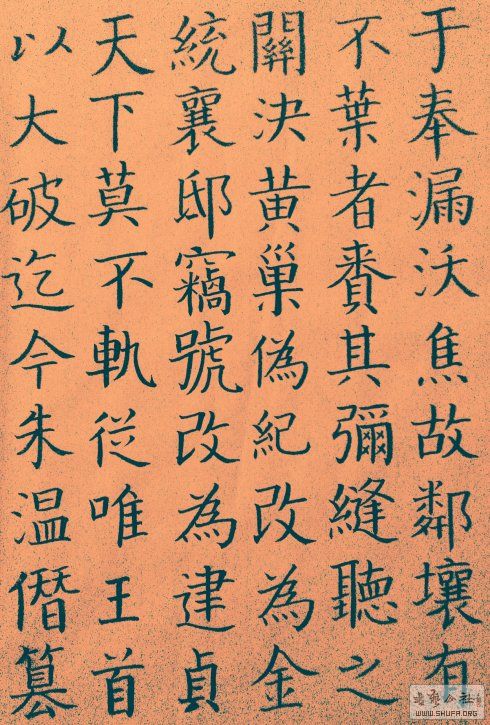 于奉漏沃焦故鄰壤有
不葉者賫其彌縫聽之
關決黄巢偽紀改為金
統襄邸竊號改為建貞
天下莫不軌從唯王首
以大破迄今朱温僭篡
WWW.SHUFA.ORG